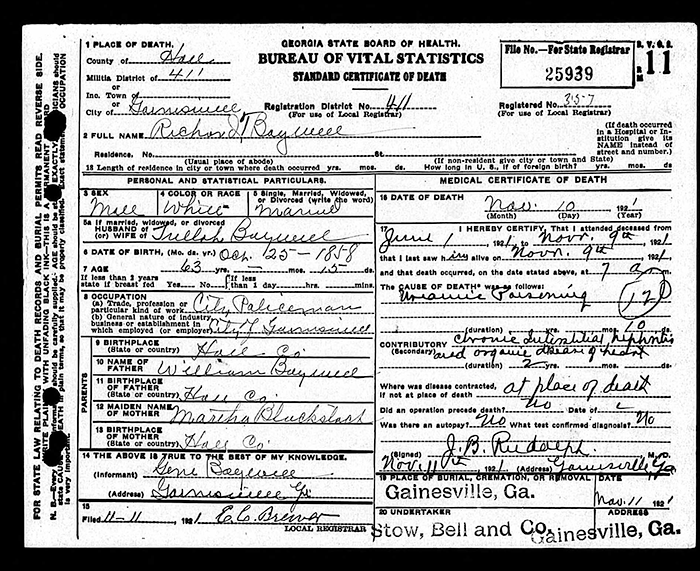 GEORGIA STATE BOARD OF HEALTH.
BUREAU OF VITAL STATISTICS
STANDARD CERTIFICATE OF DEATH
File No.—For State Registrar
25939
11
1 PLACE OF DEATH.
County of Hall
Militia District of 411
or
Inc. Town of
or
City of Gainesville
Registration District No. 411
(For use of Local Registrar)
Registered No. 357
(For use of Local Registrar)
2 FULL NAME Richard T Baywell
(If death occurred in a Hospital or Institution give its NAME instead of street and number.)
Residence. No. St.
(Usual place of abode) (If non-resident give city or town and State)
18 Length of residence in city or town where death occurred yrs. mos. ds. How long in U. S., if of foreign birth? yrs. mos. ds.
PERSONAL AND STATISTICAL PARTICULARS.
3 SEX Male
4 COLOR OR RACE White
5 Single, Married, Widowed, or Divorced (write the word) Married
5a If married, widowed, or divorced
HUSBAND OF
(or) WIFE of Tullah Baywell
6 DATE OF BIRTH (Mo. da. yr.) Oct. 25-1858
7 AGE 63 yrs. mos. 15 ds.
If less than 2 years state if breast fed Yes No
If less than 1 day hrs. min.
8 OCCUPATION
(a) Trade, profession or particular kind of work City Policeman
(b) General nature of industry, business or establishment in which employed (or employer) City of Gainesville
9 BIRTHPLACE
(State or country) Hall Co
PARENTS
10 NAME OF FATHER William Baywell
11 BIRTHPLACE OF FATHER
(State or country) Hall Co.
12 MAIDEN NAME OF MOTHER Martha Blackstock
13 BIRTHPLACE OF MOTHER
(State or country) Hall Co.
14 THE ABOVE IS TRUE TO THE BEST OF MY KNOWLEDGE.
(Informant) Gene Baywell
(Address) Gainesville Ga
15
Filed 11-11, 1921 E. C. Brewer
LOCAL REGISTRAR
MEDICAL CERTIFICATE OF DEATH
16 DATE OF DEATH
Nov. 10 1921
(Month) (Day) (Year)
17 I HEREBY CERTIFY, That I attended deceased from
June 1 1921 to Novr. 9th 1921
that I last saw him alive on Novr. 9th 1921
and that death occurred, on the date stated above, at 7 a m.
The CAUSE OF DEATH was as follows:
Uraemic Poisoning
(duration) yrs. mos. 10 ds.
CONTRIBUTORY Chronic Intestitial nephritis
(Secondary) and organic disease of heart
(duration) 2 yrs. mos. ds.
Where was disease contracted,
if not at place of death at place of death
Did an operation precede death? No Date of
Was there an autopsy? No What test confirmed diagnosis? No
(Signed) J. B. Rudolph M. D.
Nov. 11th 1921 (Address) Gainesville Ga
19 PLACE OF BURIAL, CREMATION, OR REMOVAL DATE
Gainesville, Ga. Nov. 11 1921
20 UNDERTAKER ADDRESS
Stow, Bell and Co. Gainesville, Ga.